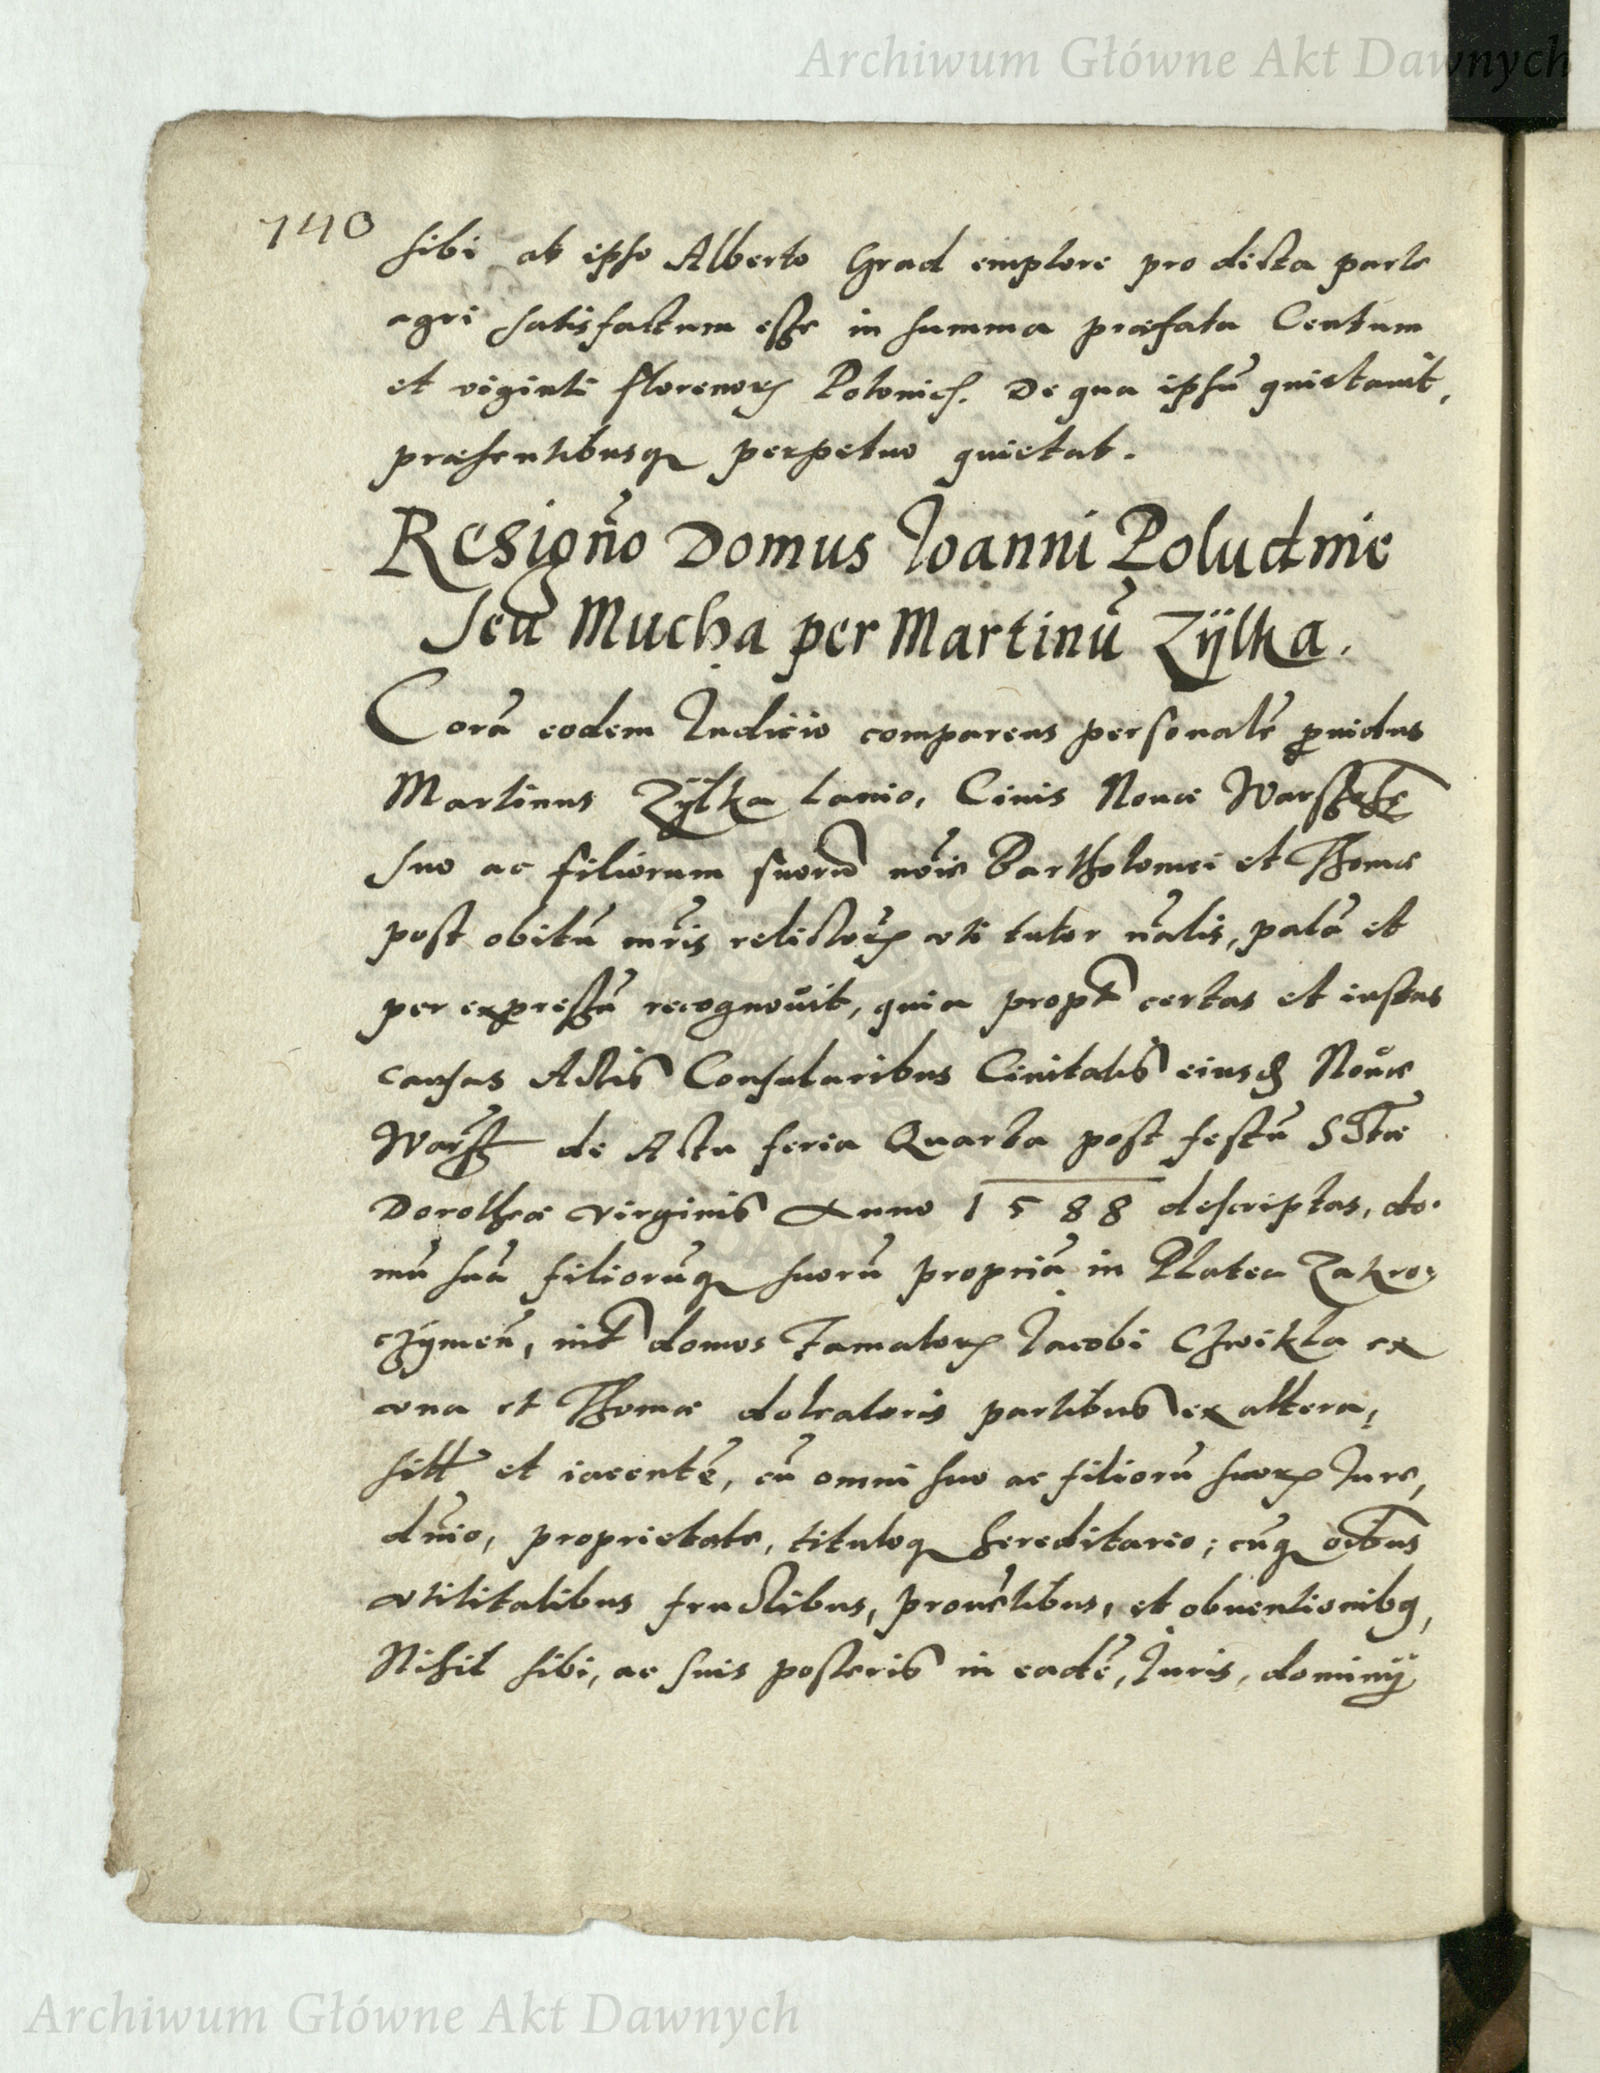 Archiwum Główne Akt Dawnych
140
sibi ab ipso Alberto Grad emptore pro dicta parte
agri satisfactum esse in summa præfata Centum
et viginti florenorꝝ Polonicꝭ. De qua ipsũ quietavit,
præsentibusqꝫ perpetuo quietat.
Resigño Domus Joanni Poludnie
seu Mucha per Martinũ Zÿlka.
Corã eodem Iudicio comparens personalẽ ꝓuidus
Martinus Zÿlka Lanio, Ciuis Nouæ
suo ac filiorum suorũ nõie Bartholomei et Thomæ
post obitũ mr̃is relictorꝝ vti tutor nãlis, palã et
per expressũ recognouit, quia propt̃ certas et iustas
causas Actis Consularibus Ciuitatis eiusd̃ Nouæ
Warsz̃ de Actu feria Quarta post festũ S̃ctæ
Dorotheæ virginis Anno 1588 descriptas, do-
mũ suã filiorũqꝫ suorũ propriã in Platea Zakro-
czymeñ, int̃ domos Famatorꝝ Jacobi Czwikla ex
vna et Thomæ doleatoris partibus ex altera,
sitt̃ et iacentẽ, cũ omni suo ac filiorũ suorꝝ Iure,
dñio, proprietate, tituloqꝫ hereditario; cũqꝫ oĩbus
vtilitatibus fructibus, prouẽtibus, et obuentionibꝫ,
Nihil sibi, ac suis posteris in eadẽ, Iuris, dominÿ
Archiwum Główne Akt Dawnych